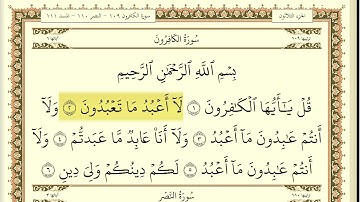 الجزء الثلاثون
سورة الكافرون ١٠٩ - النصر ١١٠ - المسد ١١١
سُورَةُ الكَافِرُونَ
بِسْمِ ٱللَّهِ ٱلرَّحْمَٰنِ ٱلرَّحِيمِ
قُلْ يَٰٓأَيُّهَا ٱلْكَٰفِرُونَ ١ لَآ أَعْبُدُ مَا تَعْبُدُونَ ٢ وَلَآ
أَنتُمْ عَٰبِدُونَ مَآ أَعْبُدُ ٣ وَلَآ أَنَا۠ عَابِدٌ مَّا عَبَدتُّمْ ٤ وَلَآ
أَنتُمْ عَٰبِدُونَ مَآ أَعْبُدُ ٥ لَكُمْ دِينُكُمْ وَلِىَ دِينِ ٦
سُورَةُ النَّصْرِ